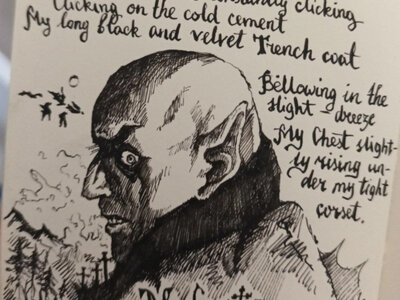 constantly clicking
Clicking on the cold cement
My long black and velvet Trench coat
Bellowing in the
slight-breeze
My Chest slight-
ly rising un-
der my tight
corset.